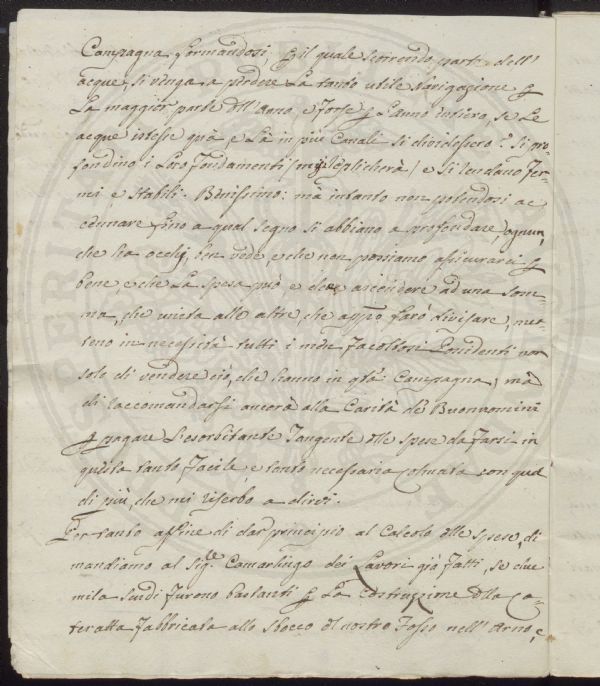 Campagna, formandosi, p il quale scorrendo parte dell'
acque, si venga a perdere la tanto utile Navigazione p
La maggior parte dll'Anno, e forse p l'anno intiero, se Le
acque istesse quà, e Là in più Canali si dividessero? Si pro-
fondino i Loro fondamenti (mi si replicherà) e si rendano fer-
mi e stabili. Benissimo: mà intanto non potendosi ac
cennare fino a qual segno si abbiano a profondare, ognun,
che ha occhj, ben vede, e che non possiamo assicurarci p
bene, e che La spesa può, e deve ascendere ad una som-
ma, che unita alle altre, che appo farò divisare, met-
teno in necessità tutti i meno facoltosi Possidenti non
solo di vendere ciò, che hanno in qta Campagna, mà
di raccomandarsi ancora alla Carità de Buonuomini
p pagare L'esorbitante Tangente dlle spese da farsi in
questa tanto facile, e tanto necessaria Colmata con quel
di più, che mi riserbo a dirvi.
Per tanto affine di dar principio al Calcolo dlle spese, di
mandiamo al Sigle Camarlingo dei Lavori già fatti, se due
mila scudi furono bastanti p La Costruzzione dlla Ca-
teratta fabbricata allo sbocco dl nostro Fosso nell'Arno, e